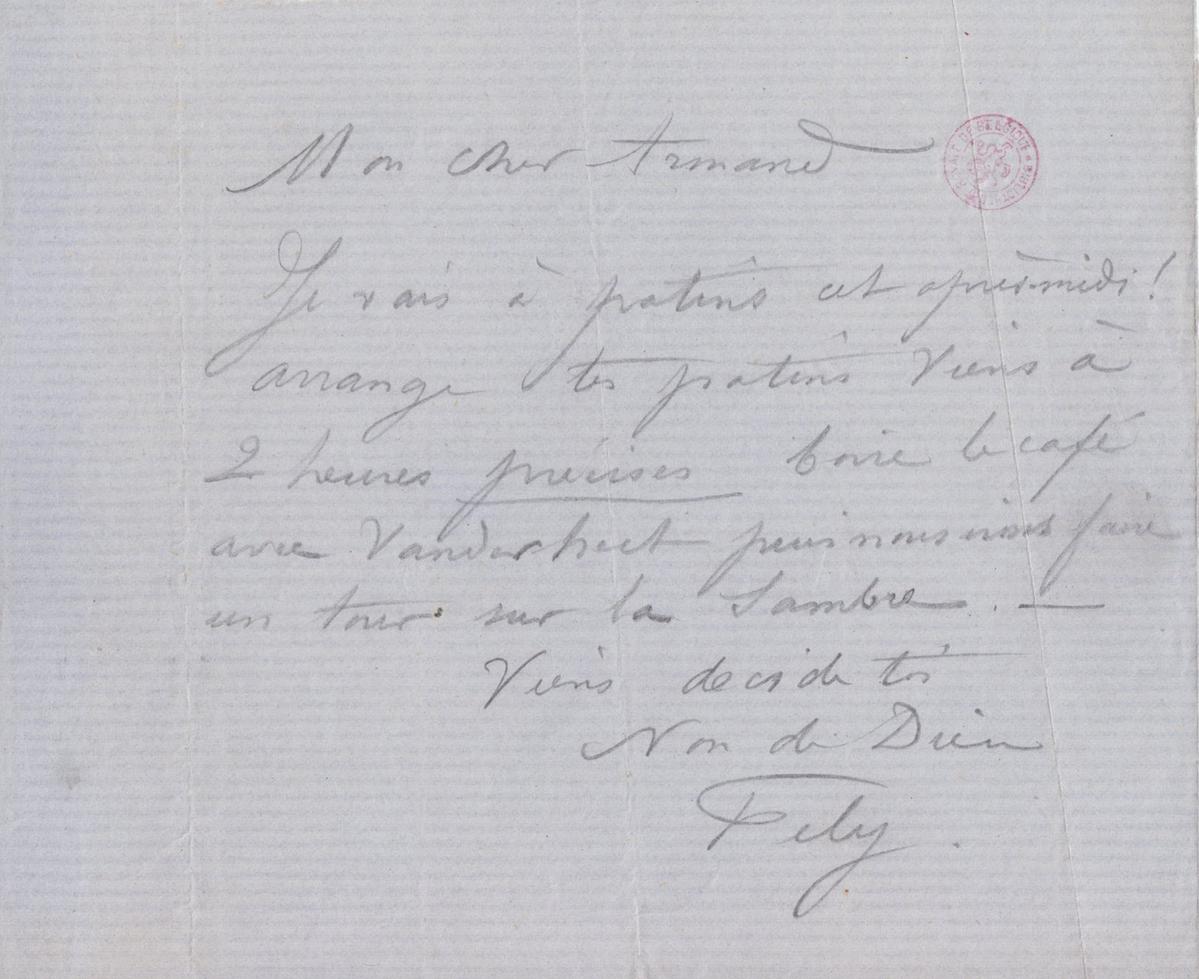 Mon cher Armand
Je vais à patins cet après-midi !
arrange tes patins Viens à
2 heures précises boire le café
avec Vanderhect puis nous irons faire
un tour sur la Sambre. —
Viens decide toi
Non de Dieu
Fély.